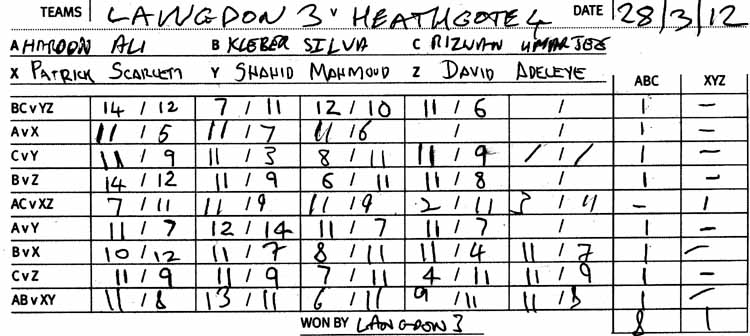 TEAMS LANGDON 3 V HEATHCOTE 4 DATE 28/3/12
A HAROON ALI B KLEBER SILVA C RIZWAN UMARJEE
X PATRICK SCARLETT Y SHAHID MAHMOUD Z DAVID ADELEYE
ABC XYZ
BCvYZ 14 / 12 7 / 11 12 / 10 11 / 6 / 1 -
AvX 11 / 6 11 / 7 11 / 6 / / 1 -
CvY 11 / 9 11 / 3 8 / 11 11 / 9 / / / 1 -
BvZ 14 / 12 11 / 9 6 / 11 11 / 8 / 1 -
ACvXZ 7 / 11 11 / 9 11 / 9 2 / 11 3 / 11 - 1
AvY 11 / 7 12 / 14 11 / 7 11 / 7 / 1 -
BvX 10 / 12 11 / 7 8 / 11 11 / 4 11 / 7 1 -
CvZ 11 / 9 11 / 9 7 / 11 4 / 11 11 / 9 1 -
ABvXY 11 / 8 13 / 11 6 / 11 9 / 11 11 / 8 1 -
WON BY LANGDON 3 8 1